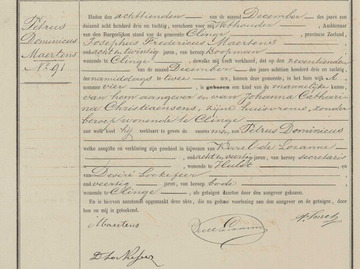 Petrus
Dominicus
Maertens
N° 91
Heden den achttienden van de maand December des jaars een
duizend acht honderd drie en tachtig, verscheen voor mij Wethouder, Ambtenaar
van den Burgerlijken stand der gemeente Clinge, provincie Zeeland,
Josephus Fredericus Maertens
oud acht en twintig jaren, van beroep
wonende te Clinge, dewelke mij heeft verklaard, dat op zeventienden
van de maand December des jaars achttien honderd drie en tachtig,
des namiddags te twee ure, in het huis wijk A,
nummer vier, is geboren een kind van het mannelijke
van hem aangever en van Johanna Catharina
Christiaensens, zijne huisvrouw, zonder
beroep wonende te Clinge
aan welk kind hij verklaart te geven de voornamen van Petrus Dominicus
welke aangifte en verklaring zijn geschied in bijwezen van Karel de
oud jaren, van beroep secretaris
wonende te Hulst en
van Desiré Lookefeer oud
veertig jaren, van beroep bode
wonende te Clinge, als getuigen daartoe door den aangever gekozen.
En is hiervan aanstonds opgemaakt deze akte, die, na gedane voorlezing aan den aangever en de getuigen, door
hen en mij is geteekend.
Maertens
D. Lookefeer